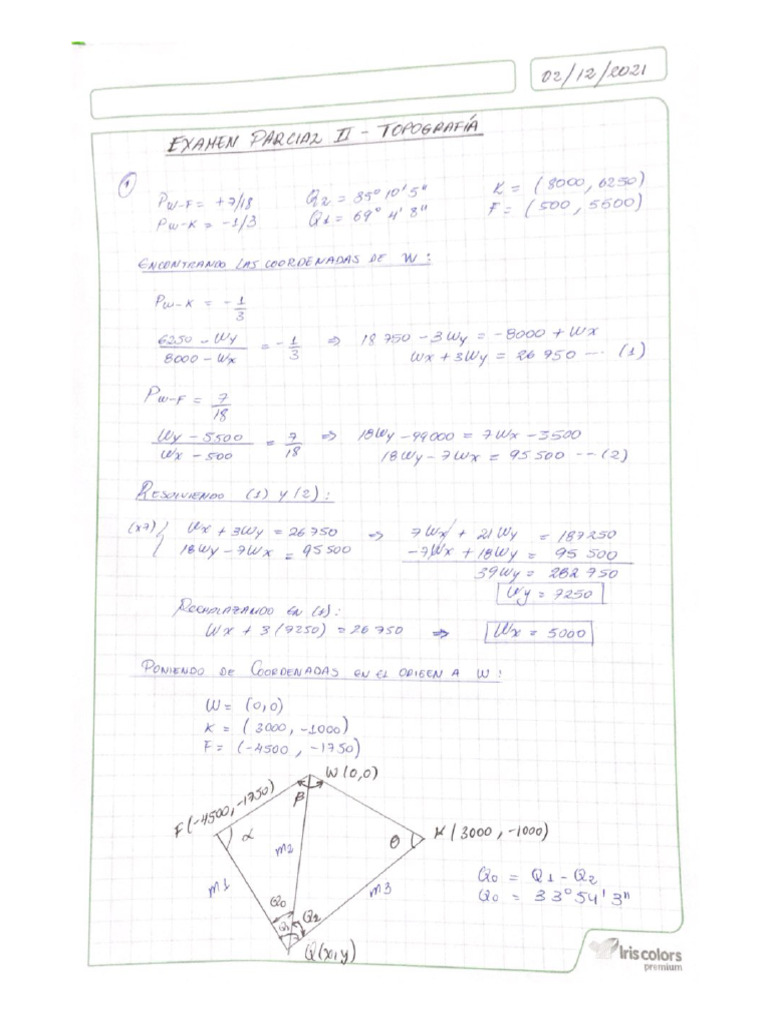 02/12/2021
EXAMEN PARCIAL II - TOPOGRAFÍA
1
Pw-F = +7/18 Q2 = 35° 10' 5" K = (8000, 6250)
Pw-K = -1/3 Q1 = 69° 4' 8" F = (500, 5500)
ENCONTRANDO LAS COORDENADAS DE W:
Pw-K = - 1/3
6250 - Wy / 8000 - Wx = - 1/3 ⇒ 18 750 - 3Wy = -8000 + Wx
Wx + 3Wy = 26 750 --- (1)
Pw-F = 7/18
Wy - 5500 / Wx - 500 = 7/18 ⇒ 18Wy - 99000 = 7Wx - 3500
18Wy - 7Wx = 95 500 --- (2)
RESOLVIENDO (1) y (2):
(x7) Wx + 3Wy = 26 750 ⇒ 7Wx + 21Wy = 187250
18Wy - 7Wx = 95 500 -7Wx + 18Wy = 95 500
39Wy = 282 750
Wy = 7250
REEMPLAZANDO EN (1):
Wx + 3(7250) = 26 750 ⇒ Wx = 5000
PONIENDO DE COORDENADAS EN EL ORIGEN A W:
W = (0,0)
K = (3000, -1000)
F = (-4500, -1750)
W(0,0)
F(-4500,-1750)
β
α
θ
K(3000, -1000)
m2
m1
m3
Q0 = Q1 - Q2
Q0 = 33° 54' 3"
Q0
Q1
Q2
Q(x,y)
Iris colors
premium